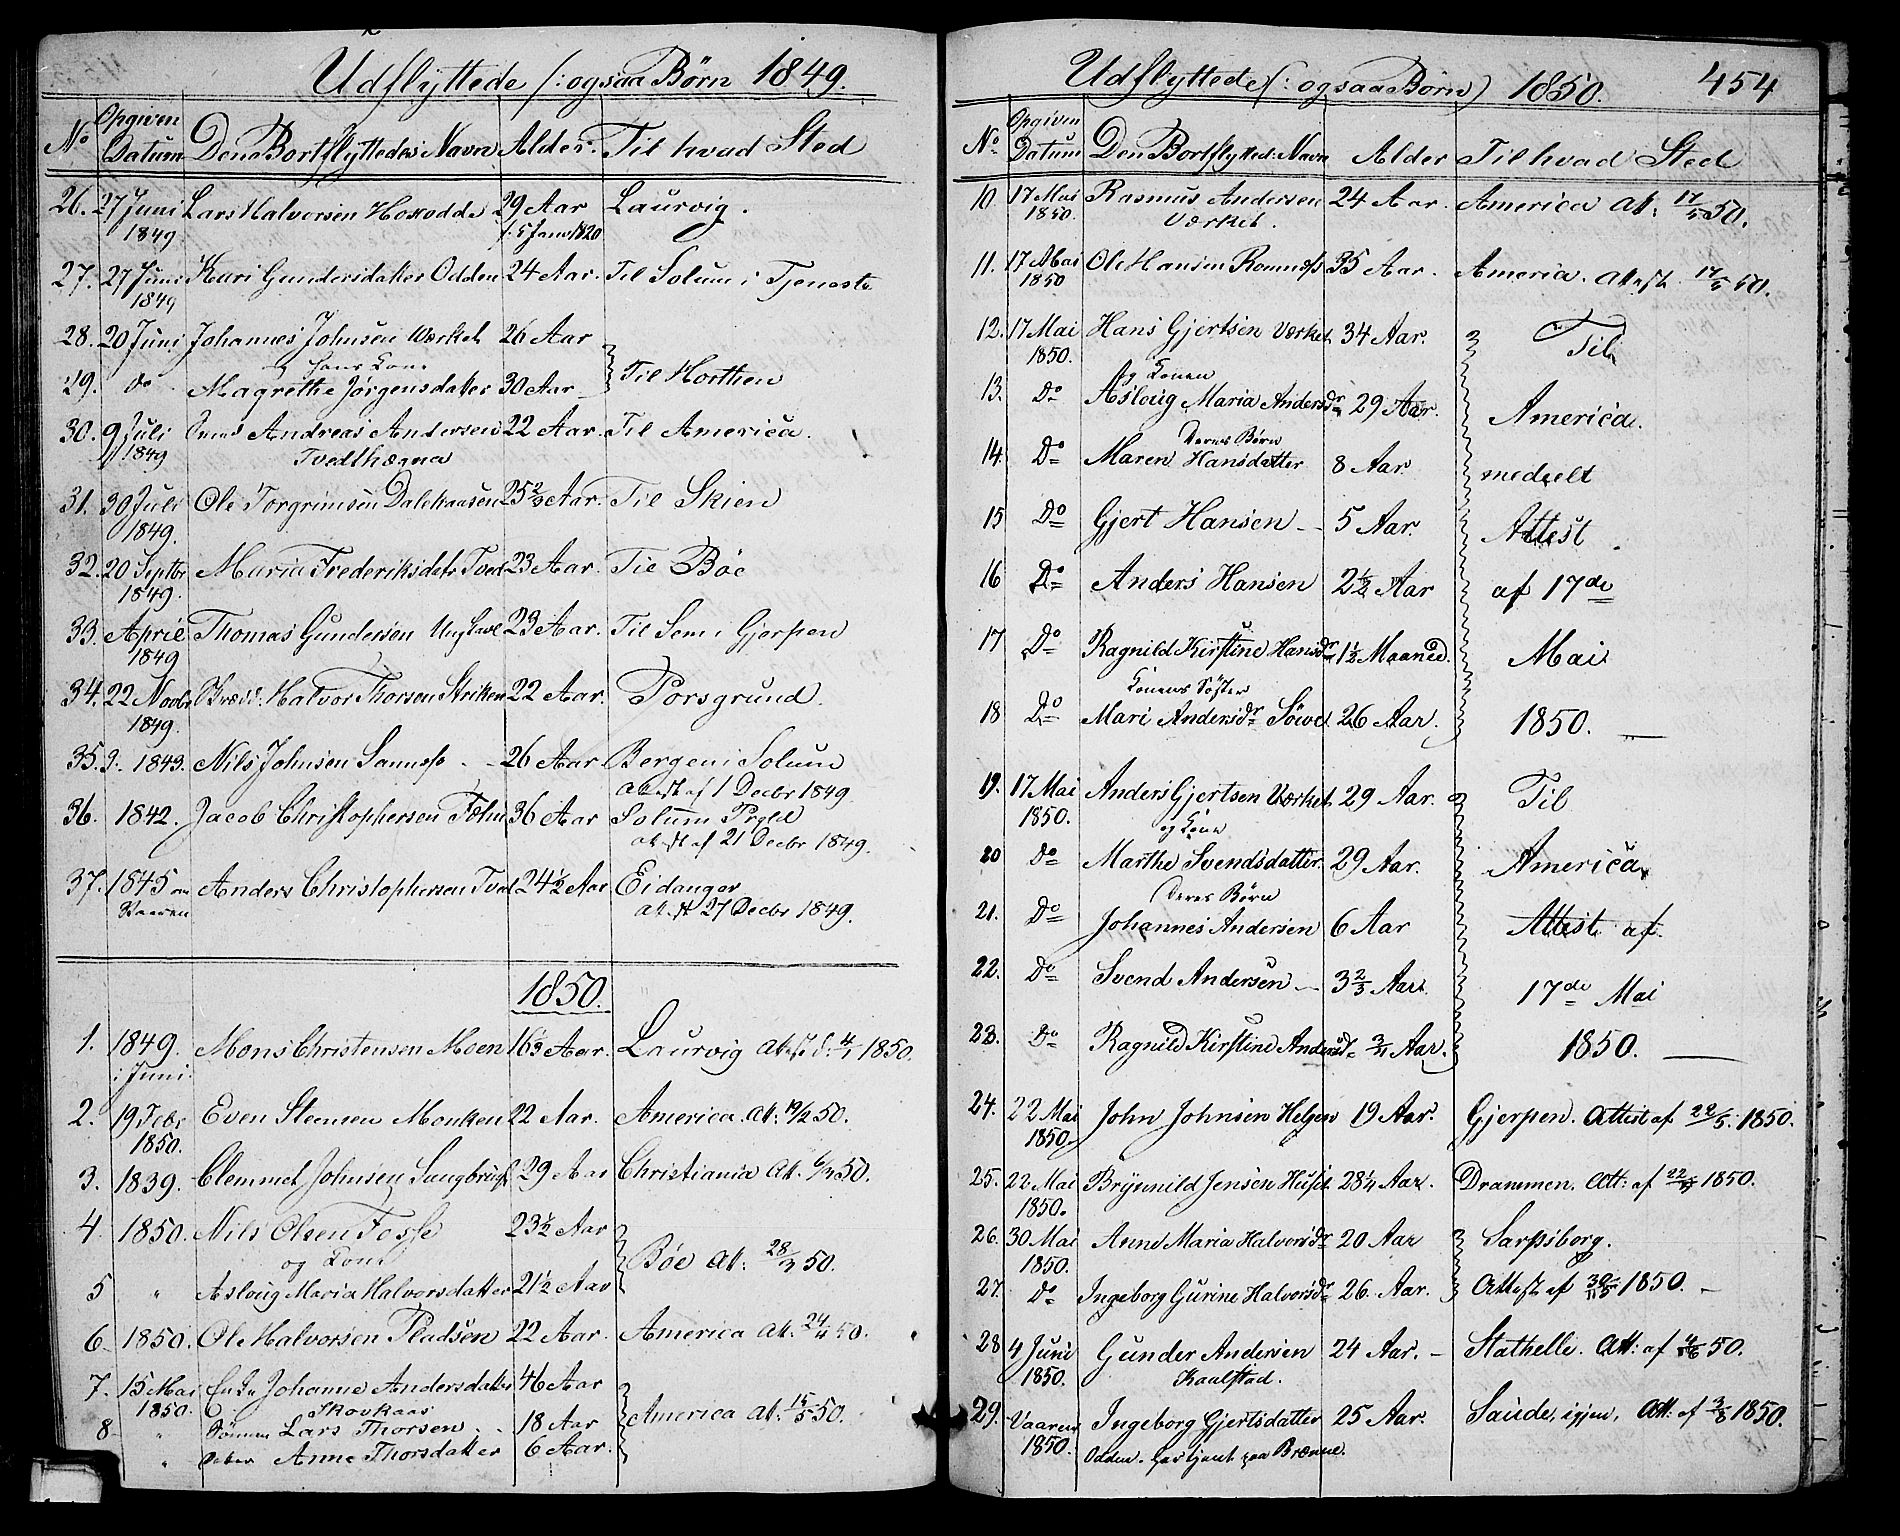 Udflyttede /: ogsaa Børn 1849.
No Opgiven Datum Den Bortflyttedes Navn Alder. Til hvad Sted
26. 27 Juni 1849 Lars Halvorsen 29 Aar f. 5 Janr 1820 Laurvig.
27. 27 Juni 1849 Kari Gundersdatter Odden 24 Aar. Til Solum i Tjeneste
28. 20 Juni Johannes Johnsen Værket 26 Aar
Hans Kone
29. do Magrethe Jørgensdatter 30 Aar Til Horthen
30. 9 Juli 1849 Andreas Andersen 22 Aar. Til America.
Tvedthægna
31. 30 Juli 1849. Ole Torgrimsen Dalekaasen 25 2/3 Aar. Til Skien
32. 20 Septbr 1849. Maria Frederiksdatr Tved 23 Aar. Til Bøe
33. April 1849 Thomas Gundersen 23 Aar. Til Sem i Gjerpen
34. 22 Novbr 1849. Halvor Thorsen Striken 22 Aar. Porsgrund.
35. 1849. Nils Johnsen 26 Aar Bergen i Solum
attest af 1 Decbr 1849.
36. 1842. Jacob Christophersen 36 Aar Solum Prgld
attest af 21 Decbr 1849.
37. 1845 om Vaaren Anders Christophersen Tved 24 1/2 Aar Eidanger
attest 27 Decbr 1849.
1850.
1. 1849. i Juni. Mons Christensen Moen Aar. Laurvig 4/1 1850.
2. 19 Febr 1850. Even Stensen Monken 22 Aar. America. Att: 19/2 50.
3. 1839. Clemmet Johnsen 29 Aar Christiania Att. 6/3 50.
4. 1850. Nils Olsen Fosse 23 1/2 Aar
og Kone
Bøe Att: 28/3 50.
5 " Asloug Maria Halvorsdatter 21 1/2 Aar
6. 1850. Ole Halvorsen Pladsen 22 Aar. America Att. 24/4 50.
7. 15 Mai 1850. Enke Johanne Andersdatter 46 Aar
Skovkaas
America Att: 15/5 50.
8. " Sønnen Lars Thorsen 18 Aar
" Datter Anne Thorsdatter 6 Aar.
Udflyttede (: ogsaa Børn) 1850. 454
No Opgiven Datum Den Bortflyttedes Navn Alder Til hvad Sted
10. 17 Mai 1850. Rasmus Andersen 24 Aar. America Att: 17/5 50.
Værket.
11. 17 Mai 1850 Ole Hansen 35 Aar. America. Attest 17/5 50.
12. 17 Mai 1850. Hans Gjertsen Værket 34 Aar. Til
og Konen
13. Do Asloug Maria Andersdr 29 Aar. America.
Deres Børn
14 Do Maren Hansdatter 8 Aar. meddelt
15 Do Gjert Hansen 5 Aar. Attest
16 Do Anders Hansen 2 1/2 Aar af 17de
17 Do Ragnild Kirstine Hansdr 1 1/2 Maaned. Mai
Konens Søster
18 Do Mari Andersdr Søvet 26 Aar. 1850.
19. 17 Mai 1850. Anders Gjertsen Værket 29 Aar. Til
og Kone
20 Do Marthe Svendsdatter 29 Aar. America
Deres Børn
21. Do Johannes Andersen 6 Aar Attest af
22. Do Svend Andersen 3 2/3 Aar. 17de Mai
23. Do Ragnild Kirstine Andersdr Aar. 1850.
24. 22 Mai 1850. John Johnsen Helgen 19 Aar. Gjerpen. Attest af 22/5. 1850.
25. 22 Mai 1850. Brynnild Jensen 28 1/4 Aar. Drammen. Att: af 22/5 1850.
26. 30 Mai 1850. Anne Maria Halvorsdr 20 Aar Sarpsborg.
27. Do Ingeborg Gurine Halvorsdr 26. Aar. Attest af 30/5 1850.
28 4 Juni 1850. Gunder Andersen 24 Aar. Stathelle. Att: af 4/6 50.
Kaalstad.
29. Vaaren 1850. Ingeborg Gjertsdatter 25 Aar. Saude, igjen, Att: af 3/8 1850.
Odden. har tjent paa Brænne.